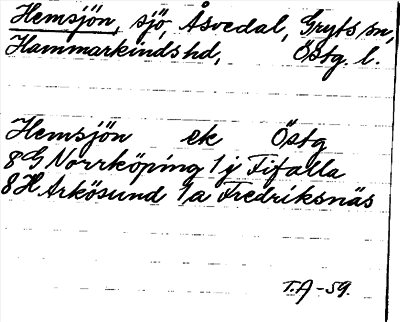 Hemsjön, sjö, Åsvedal, Gryts sn,
Hammarkinds hd, Östg. l.
Hemsjön ek Östg
8G Norrköping 1j Fifalla
8H Arkösund 1a Fredriksnäs
T.A -59.